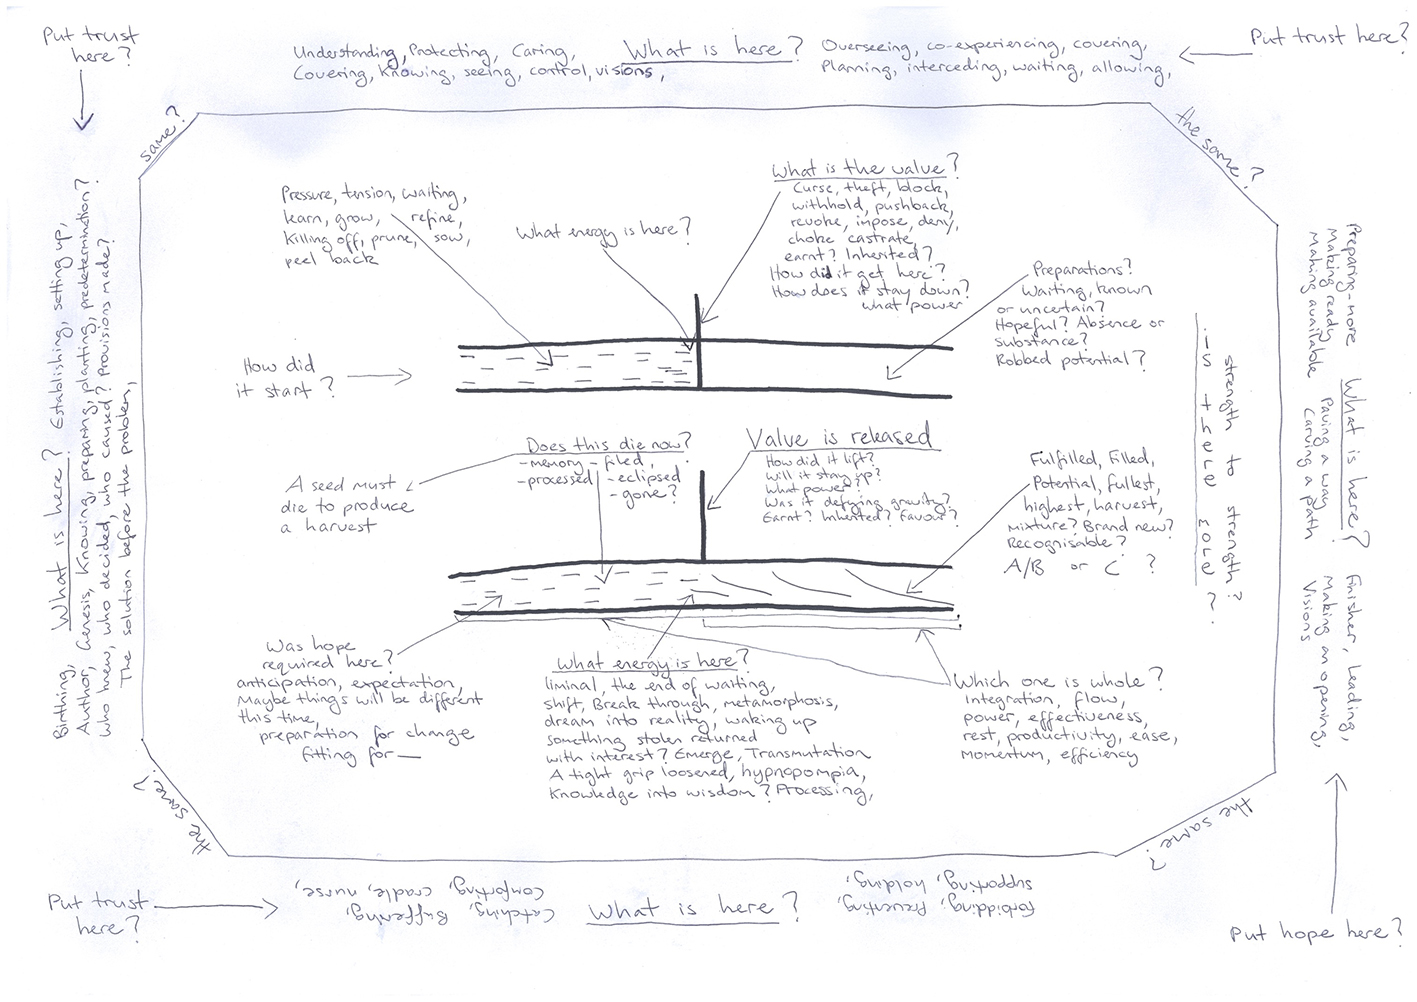 Put trust
here?
Understanding, Protecting, Caring,
Covering, Knowing, seeing, control, visions,
What is here?
Overseeing, co-experiencing, covering,
Planning, interceding, waiting, allowing,
Put trust here?
same?
the same?
Pressure, tension, waiting,
learn, grow, refine,
Killing off, prune, sow,
peel back
What energy is here?
What is the valve?
Curse, theft, block,
withhold, pushback,
revoke, inpose, deny,
choke castrate,
earnt? Inherited?
How did it get here?
How does it stay down?
what power
Preparations?
Waiting, known
or uncertain?
Hopeful? Absence or
substance?
Robbed potential?
How did
it start?
Does this die now?
-memory -filed,
-processed -eclipsed
-gone?
A seed must
die to produce
a harvest
Valve is released
How did it lift?
Will it stay up?
What power?
Was it defying gravity?
Earnt? Inherited? Favour?
Fulfilled, Filled,
Potential, fullest,
highest, harvest,
mixture? Brand new?
Recognisable?
A/B or C ?
strength to strength?
is there more?
Was hope
required here?
anticipation, expectation,
Maybe things will be different
this time,
preparation for change
fitting for—
What energy is here?
liminal, the end of waiting,
shift, Break through, metamorphosis,
dream into reality, waking up
something stolen returned
with interest? Emerge, Transmutation
A tight grip loosened, hypnopompia,
Knowledge into wisdom? Processing,
Which one is whole?
Integration, flow,
power, effectiveness,
rest, productivity, ease,
Momentum, efficiency
Birthing, What is here? Establishing, setting up,
Author, Genesis, Knowing, preparing, planting, predetermination?
who knew, who decided, who caused? Provisions made?
The solution before the problem,
Preparing-more
Making ready
Making available
What is here?
Paving a way
Carving a path
Finisher, Leading,
Making an opening,
Visions
the same?
the same?
Put trust
here?
Catching, Buffering,
Comforting, cradle, nurse,
What is here?
Forbidding, Preventing,
supporting, holding,
Put hope here?